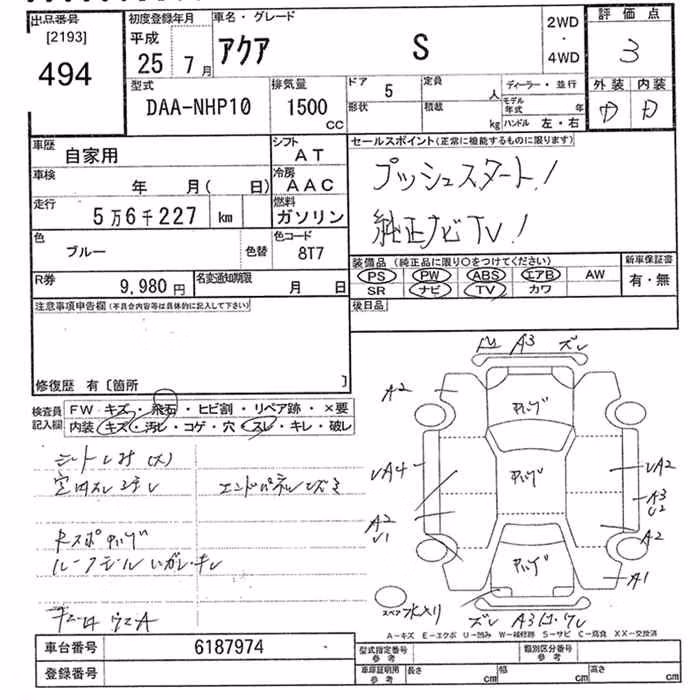 出品番号
[2193]
494
初度登録年月
平成
25 7月
車名・グレード
アクア S
2WD
・
4WD
評価点
3
型式
DAA-NHP10
排気量
1500
CC
ドア
5
定員
人
形状
積載
kg
ディーラー・並行
モデル年式 年
ハンドル 左・右
外装 内装
D D
車歴
自家用
シフト
AT
車検
年 月( 日)
冷房
AAC
走行
5万6千227 km
燃料
ガソリン
色
ブルー
色替
色コード
8T7
R券
9,980円
名変通知期限
月 日
セールスポイント(正常に機能するものに限ります)
プッシュスタート!
純正ナビTV!
装備品 (純正品に限り○をつけてください)
PS PW ABS エアB AW
SR ナビ TV カワ
新車保証書
有・無
後日品
注意事項申告欄(不具合内容等は具体的に記入して下さい)
修復歴 有〔箇所 〕
検査員
記入欄
FW キズ・飛石・ヒビ割・リペア跡・×要
内装 キズ・汚レ・コゲ・穴・スレ・キレ・破レ
A3 ズレ
A2
A4
A2
A3
U2
A2
U1
A2
A1
スペア
ズレ A3
A-キズ E-エクボ U-凹み W-補修跡 S-サビ C-腐食 XX-交換済
車台番号
6187974
登録番号
型式指定番号
参考
類別区分番号
参考
車庫証明用
参考
長さ cm
幅 cm
高さ cm